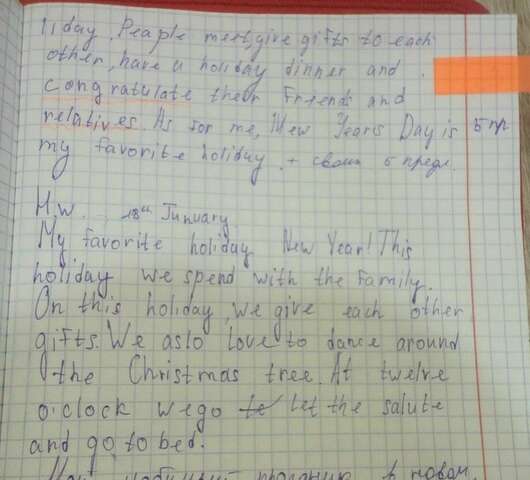 liday. People meet, give gifts to each
other, have a holiday dinner and
congratulate their Friends and
relatives. As for me, New Years Day is 5 пр
my favorite holiday. + свои 5 предл.
H.W. 18th Junuary
My favorite holiday New Year! This
holiday we spend with the family.
On this holiday, we give each other
gifts. We aslo love to dance around
the Christmas tree. At twelve
o'clock we go to let the salute
and go to bed.